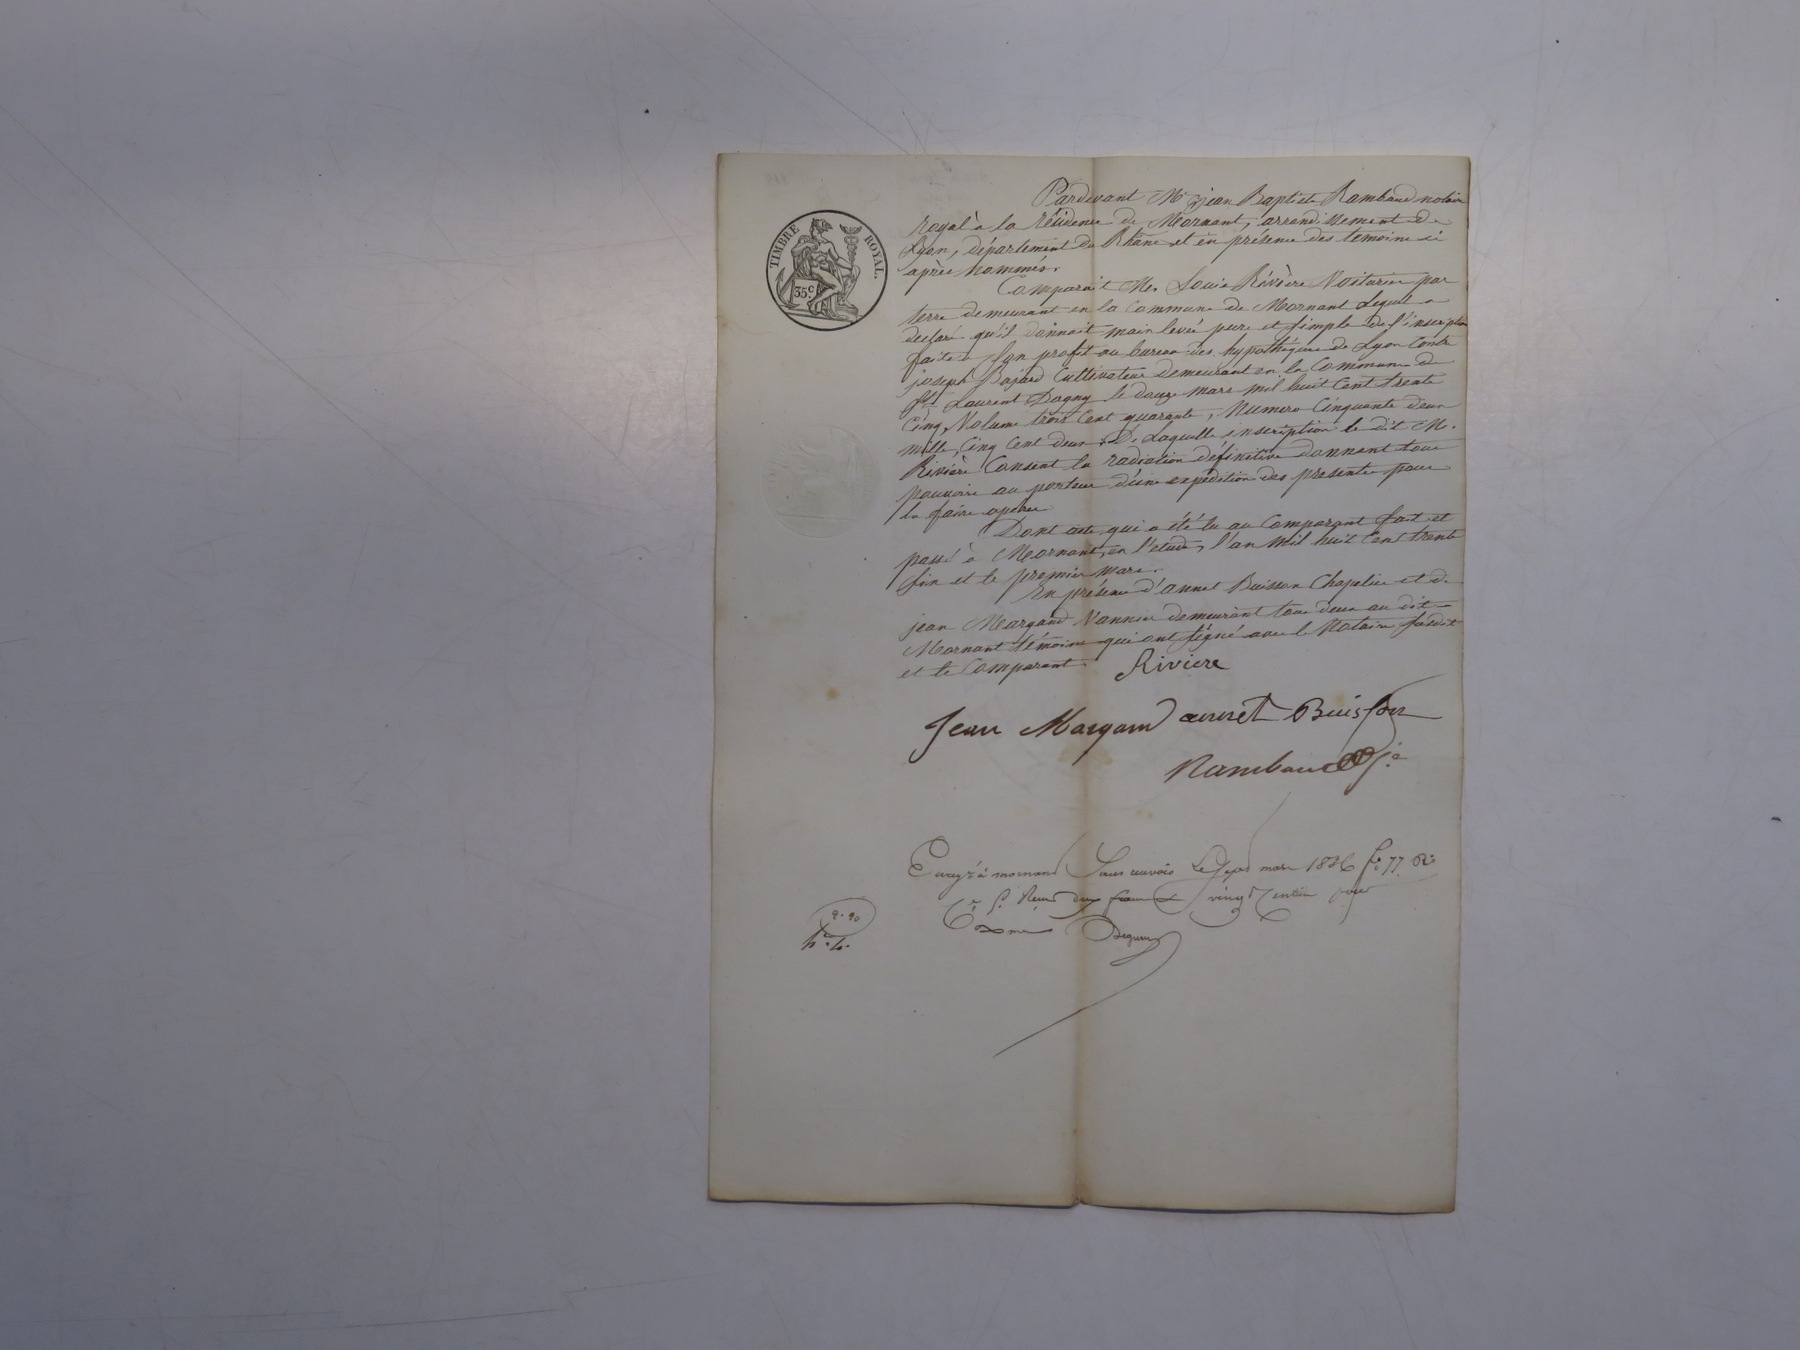 TIMBRE ROYAL.
35c
Pardevant Me jean Baptiste Rambaud notaire
royal à la résidence de Mornant, arrondissement de
Lyon, département du Rhône et en présence des temoins ci
après nommés.
Comparait Mr. Louis Rivière Voiturier par
terre demeurant en la Commune de Mornant Lequel a
declaré qu'il donnait main levée pure et simple de l'inscription
faite à son profit au bureau des hypothèques de Lyon Contre
joseph Bajard Cultivateur demeurant en la Commune de
St Laurent Dagny le douze mars mil huit Cent trente
Cinq, Volume trois Cent quarante, Numero Cinquante deux
mille, Cinq Cent deux, De Laquelle inscription le dit Mr.
Rivière Consent la radiation définitive donnant tous
pouvoirs au porteur d'une expédition des presentes pour
la faire opérer
Dont acte qui a été lu au Comparant fait et
passé à Mornant, en l'etude, l'an Mil huit Cent trente
six et le premier mars.
En présence d'annet Buisson Chapelier et de
jean Margand Vannier demeurant tous deux au dit
Mornant témoins qui ont signé avec le Notaire susdit
et le Comparant. Riviere
Jean Margand annet Buisson
Rambaud
à mornant Le mars 1836 fo 77 Ro
Reçu deux francs vingt Centimes pour
2.20